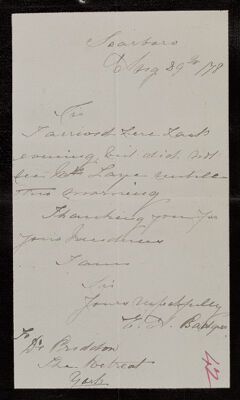 Scarboro
Aug 29th /78
Sir
I arrived here last
evening but did not
see Mr Lane untill
this morning
Thanking you for
your kindness
I am
Sir
Yours respectfully
E. D.
To
Dr
The Retreat
York
42